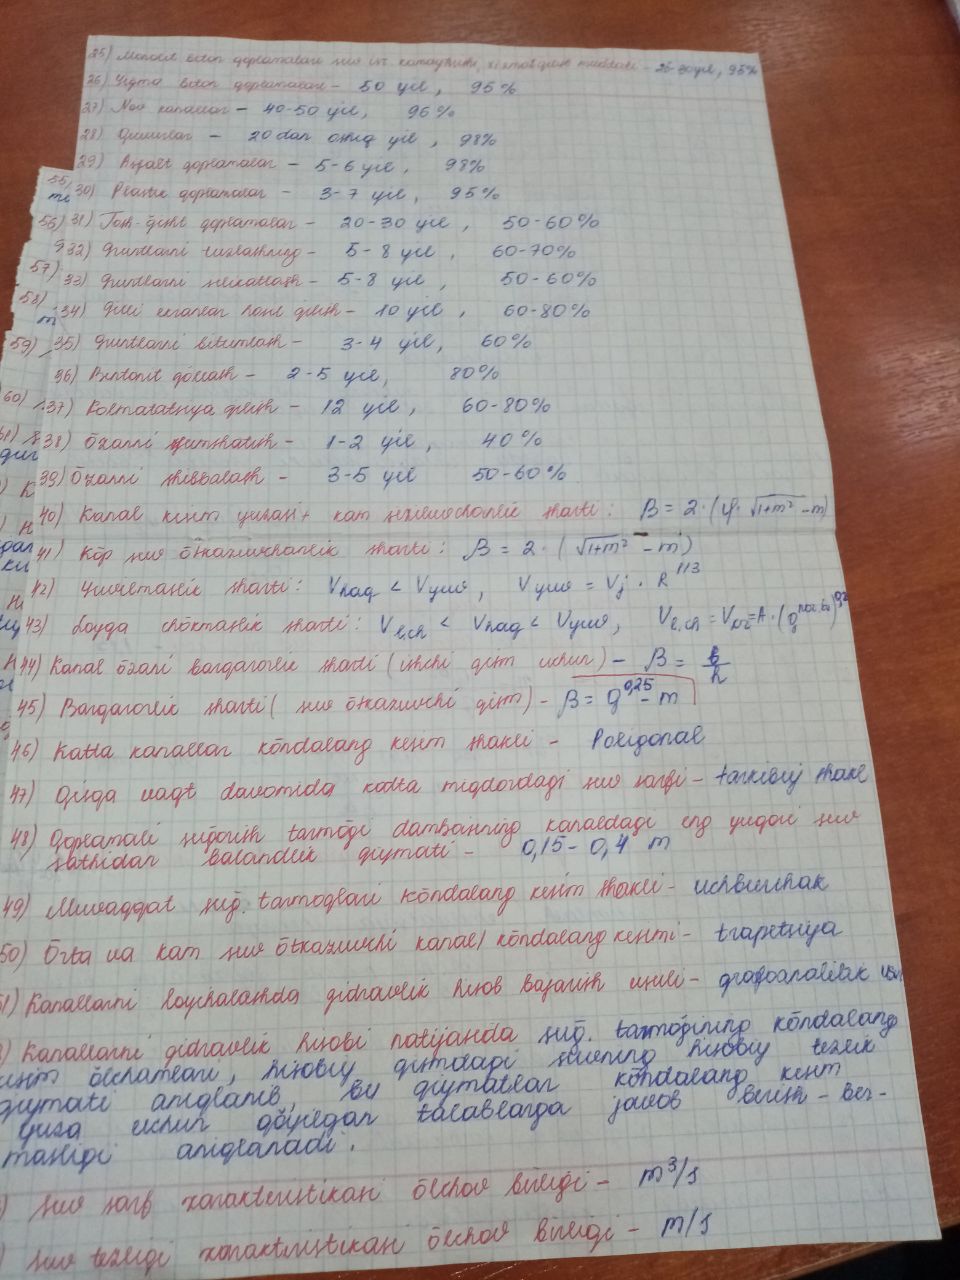 25) Monolit beton qoplamalari suv isr. kamayishi, xizmat qilish muddati - 25-30 yil, 95%
26) Yig'ma beton qoplamalari - 50 yil, 95%
27) Nov kanallar - 40-50 yil, 96%
28) Quvurlar - 20 dan ortiq yil, 98%
29) Asfalt qoplamalar - 5-6 yil, 98%
30) Plastik qoplamalar - 3-7 yil, 95%
31) Tosh-g'isht qoplamalar - 20-30 yil, 50-60%
32) Gruntlarni tuzlashning - 5-8 yil, 60-70%
33) Gruntlarni silikatlash - 5-8 yil, 50-60%
34) Gilli ekranlar hosil qilish - 10 yil, 60-80%
35) Gruntlarni bitumlash - 3-4 yil, 60%
36) Bentonit qo'llash - 2-5 yil, 80%
37) Kolmatatsiya qilish - 12 yil, 60-80%
38) Õzanni yumshatish - 1-2 yil, 40%
39) Õzanni shibbalash - 3-5 yil 50-60%
40) Kanal kesim yuzasi + kam suziluvchanlik sharti: β = 2·(φ·√1+m² - m)
41) Kõp suv õtkazuvchanlik sharti: β = 2·(√1+m² - m)
42) Yuvilmaslik sharti: Vhaq < Vyuv, Vyuv = Vj · R^1/3
43) Loyqa chõkmaslik sharti: Vl.ch < Vhaq < Vyuv, Vl.ch = = A·(Q
44) Kanal õzani barqarorlik sharti (ishchi qism uchun) - β = b/h
45) Barqarorlik sharti (suv õtkazuvchi qism) - β = Q^0,25 - m
46) Katta kanallar kõndalang kesim shakli - Poligonal
47) Qisqa vaqt davomida katta miqdordagi suv sarfi - tarkibiy shakl
48) Qoplamali sug'orish tarmog'i dambasining kanaldagi eng yuqori suv
sathidan balandlik qiymati - 0,15-0,4 m
49) Muvaqqat sug'. tarmoqlari kõndalang kesim shakli - uchburchak
50) Õrta va kam suv õtkazuvchi kanal kõndalang kesimi - trapetsiya
51) Kanallarni loyihalashda gidravlik hisob bajarish usuli - grafoanalitik
) Kanallarni gidravlik hisobi natijasida sug'. tarmog'ining kõndalang
kesim õlchamlari, hisobiy qismdagi suvning hisobiy tezlik
qiymati aniqlanib, bu qiymatlar kõndalang kesim
yuza uchun qõyilgan talablarga javob berish-ber-
masligi aniqlanadi.
) Suv sarf xarakteristikasi õlchov birligi - m³/s
) Suv tezligi xarakteristikasi õlchov birligi - m/s
55)
56)
57)
58)
59)
60)